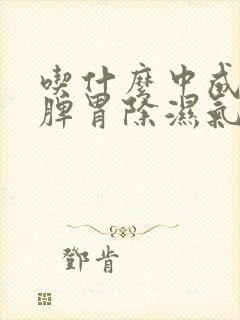 喫什麼中成
脾胃除濕氣
鄧肯